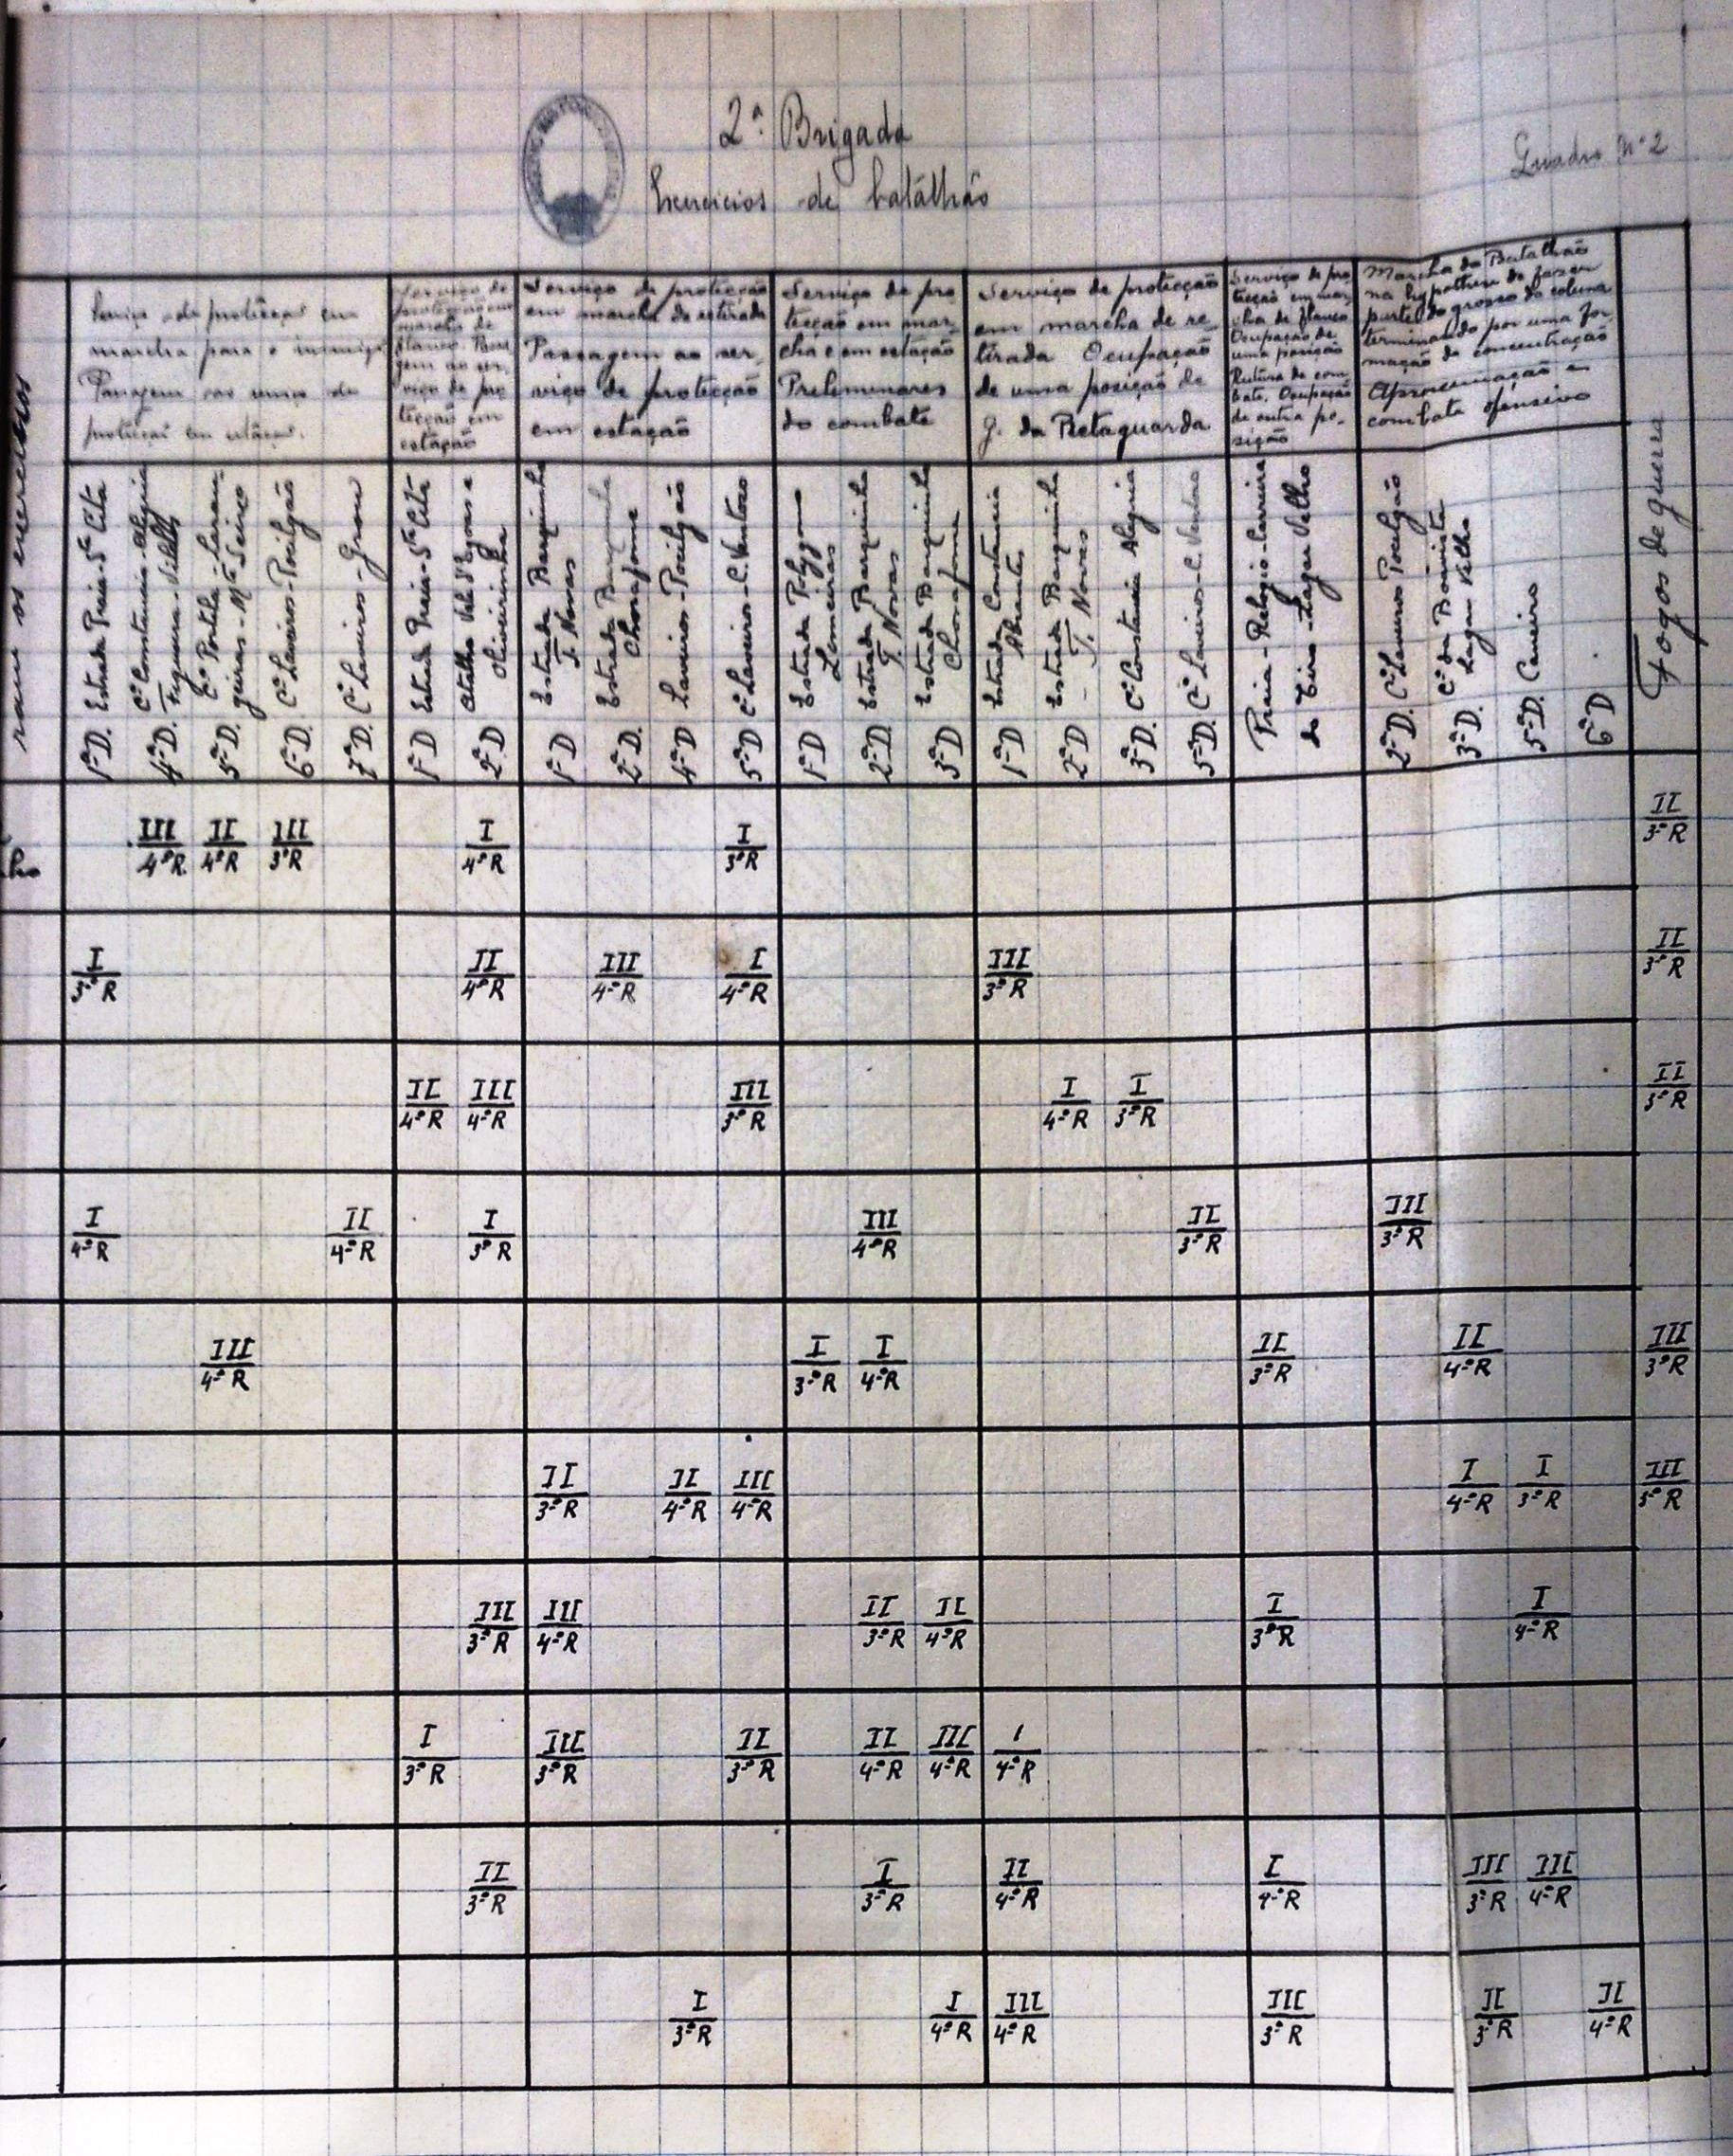 2ª Brigada
Exercicios de batalhão
Quadro Nº 2
ram os exercicios
Serviço de protecção em
marcha para o inimigo
Passagem ao serviço de
protecção em estação.
Serviço de
protecção em
marcha de
flanco. Passa
gem ao ser
viço de pro
tecção em
estação
Serviço de protecção
em marcha de retirada
Passagem ao ser
viço de protecção
em estação
Serviço de pro
tecção em mar
cha e em estação
Preliminares
do combate
Serviço de protecção
em marcha de re
tirada Ocupação
de uma posição de
g. da Retaguarda
Serviço de pro
tecção em mar
cha de flanco
Ocupação de
uma posição
Rutura de com
bate. Ocupação
de outra po
sição
Marcha do Batalhão
na hypothese de fazer
parte do grosso da coluna
terminando por uma for
mação de concentração
Aproximação e
combate ofensivo
Fogos de guerra
1ª D. Estrada Praia - 5ª Cita
4ª D. Cº Constancia - Alegria
Figueira
5ª D. Cº Portela - Laran
geiras - Mta Seixo
6ª D. Cº Laneiros - Pocilgão
7ª D. Cº Laneiros
1ª D Estrada Praia - 5ª Cita
2ª D. Atalho
Oliveirinha
1ª D Estrada Barquinha
T. Novas
2ª D. Estrada Barquinha
4ª D Laneiros - Pocilgão
5ª D Cº Laneiros - C. Ventoso
1ª D Estrada Polygono
Limeiras
2ª D. Estrada Barquinha
T. Novas
3ª D Estrada Barquinha
1ª D Estrada Constancia
Abrantes
2ª D Estrada Barquinha
- T. Novas
3ª D. Cº Constancia Alegria
5ª D. Cº Laneiros - C. Ventoso
Praia - Relogio - Carreira
de Tiro - Lagar Velho
2ª D. Cº Laneiros Pocilgão
3ª D. Cº da Boavista
Lagar Velho
5ª D. Caneiro
6ª D
lho III/4º R. II/4º R III/3º R I/4º R I/3º R II/3º R
I/3º R II/4º R III/4º R I/4º R III/3º R II/3º R
II/4º R III/4º R III/3º R I/4º R I/3º R II/3º R
I/4º R II/4º R I/3º R III/4º R II/3º R III/3º R
III/4º R I/3º R I/4º R II/3º R II/4º R III/3º R
II/3º R II/4º R III/4º R I/4º R I/3º R III/3º R
III/3º R III/4º R II/3º R II/4º R I/3º R I/4º R
I/3º R III/3º R II/3º R II/4º R III/4º R I/4º R
II/3º R I/3º R II/4º R I/4º R III/3º R III/4º R
I/3º R I/4º R III/4º R III/3º R II/3º R II/4º R